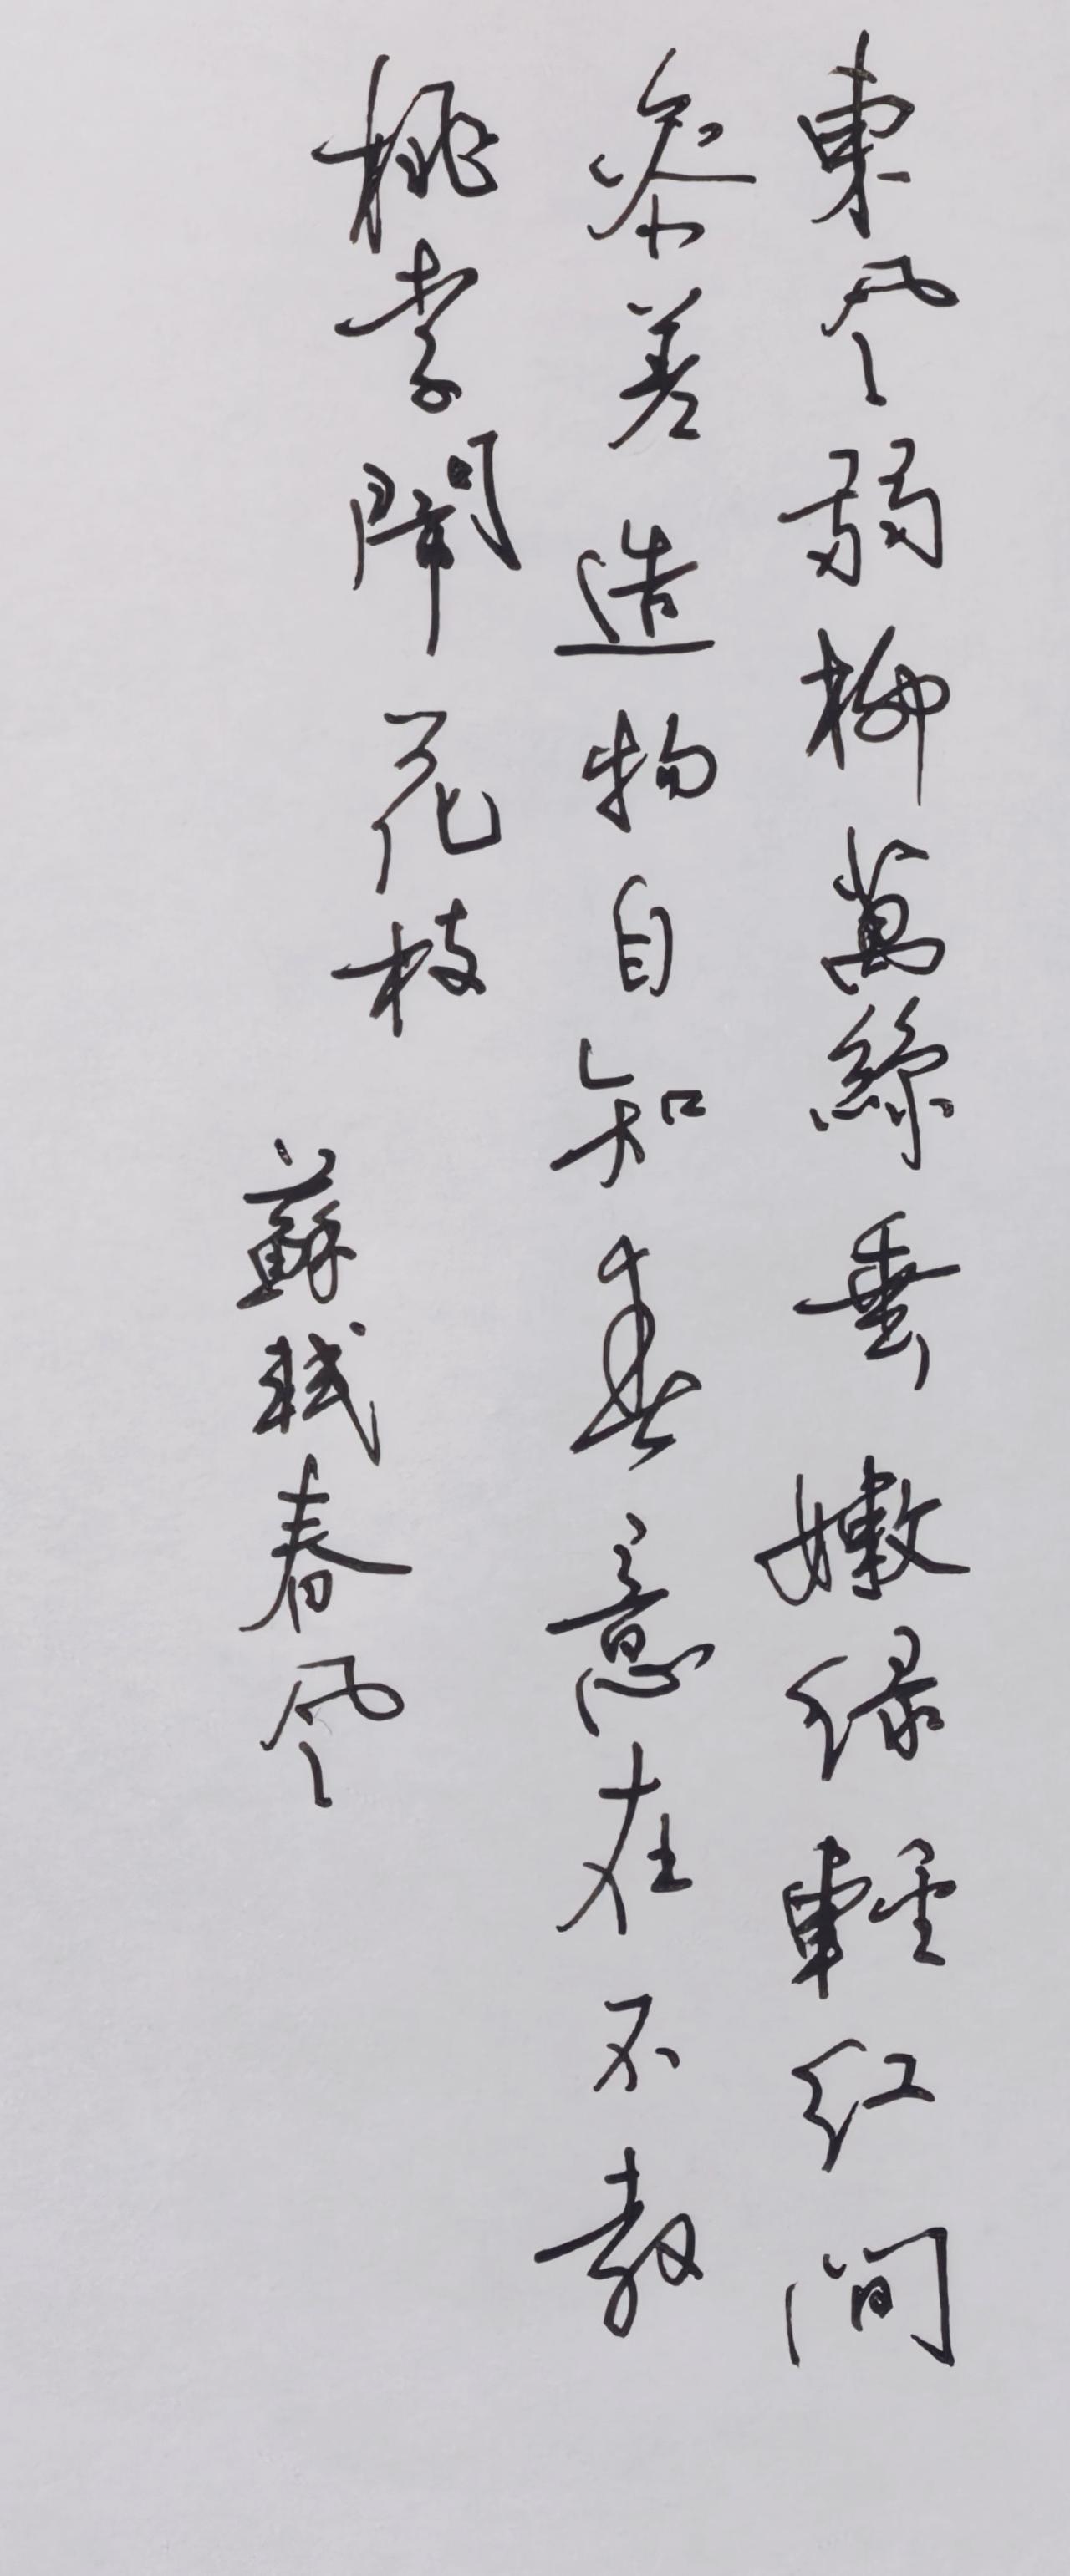 東風弱柳萬絲垂嫩绿輕红间
參差造物自知春意在不教
桃李鬧花枝
蘇軾春风